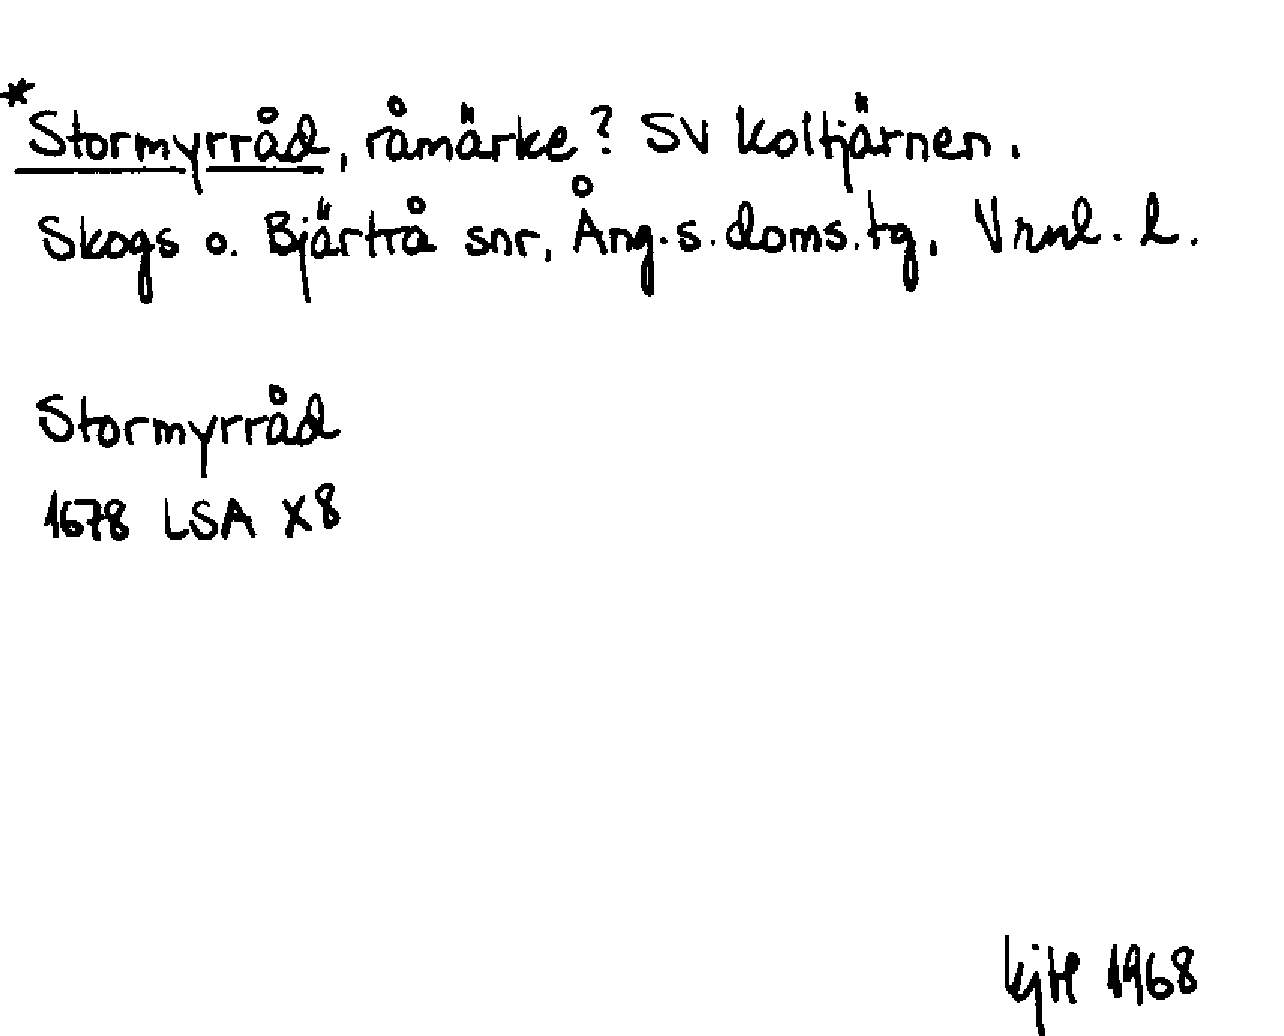 *Stormyrråd, råmärke? SV Koltjärnen.
Skogs o. Bjärtrå snr, Ång.s.doms.tg, Vrnl. l.
Stormyrråd
1678 LSA X8
1968